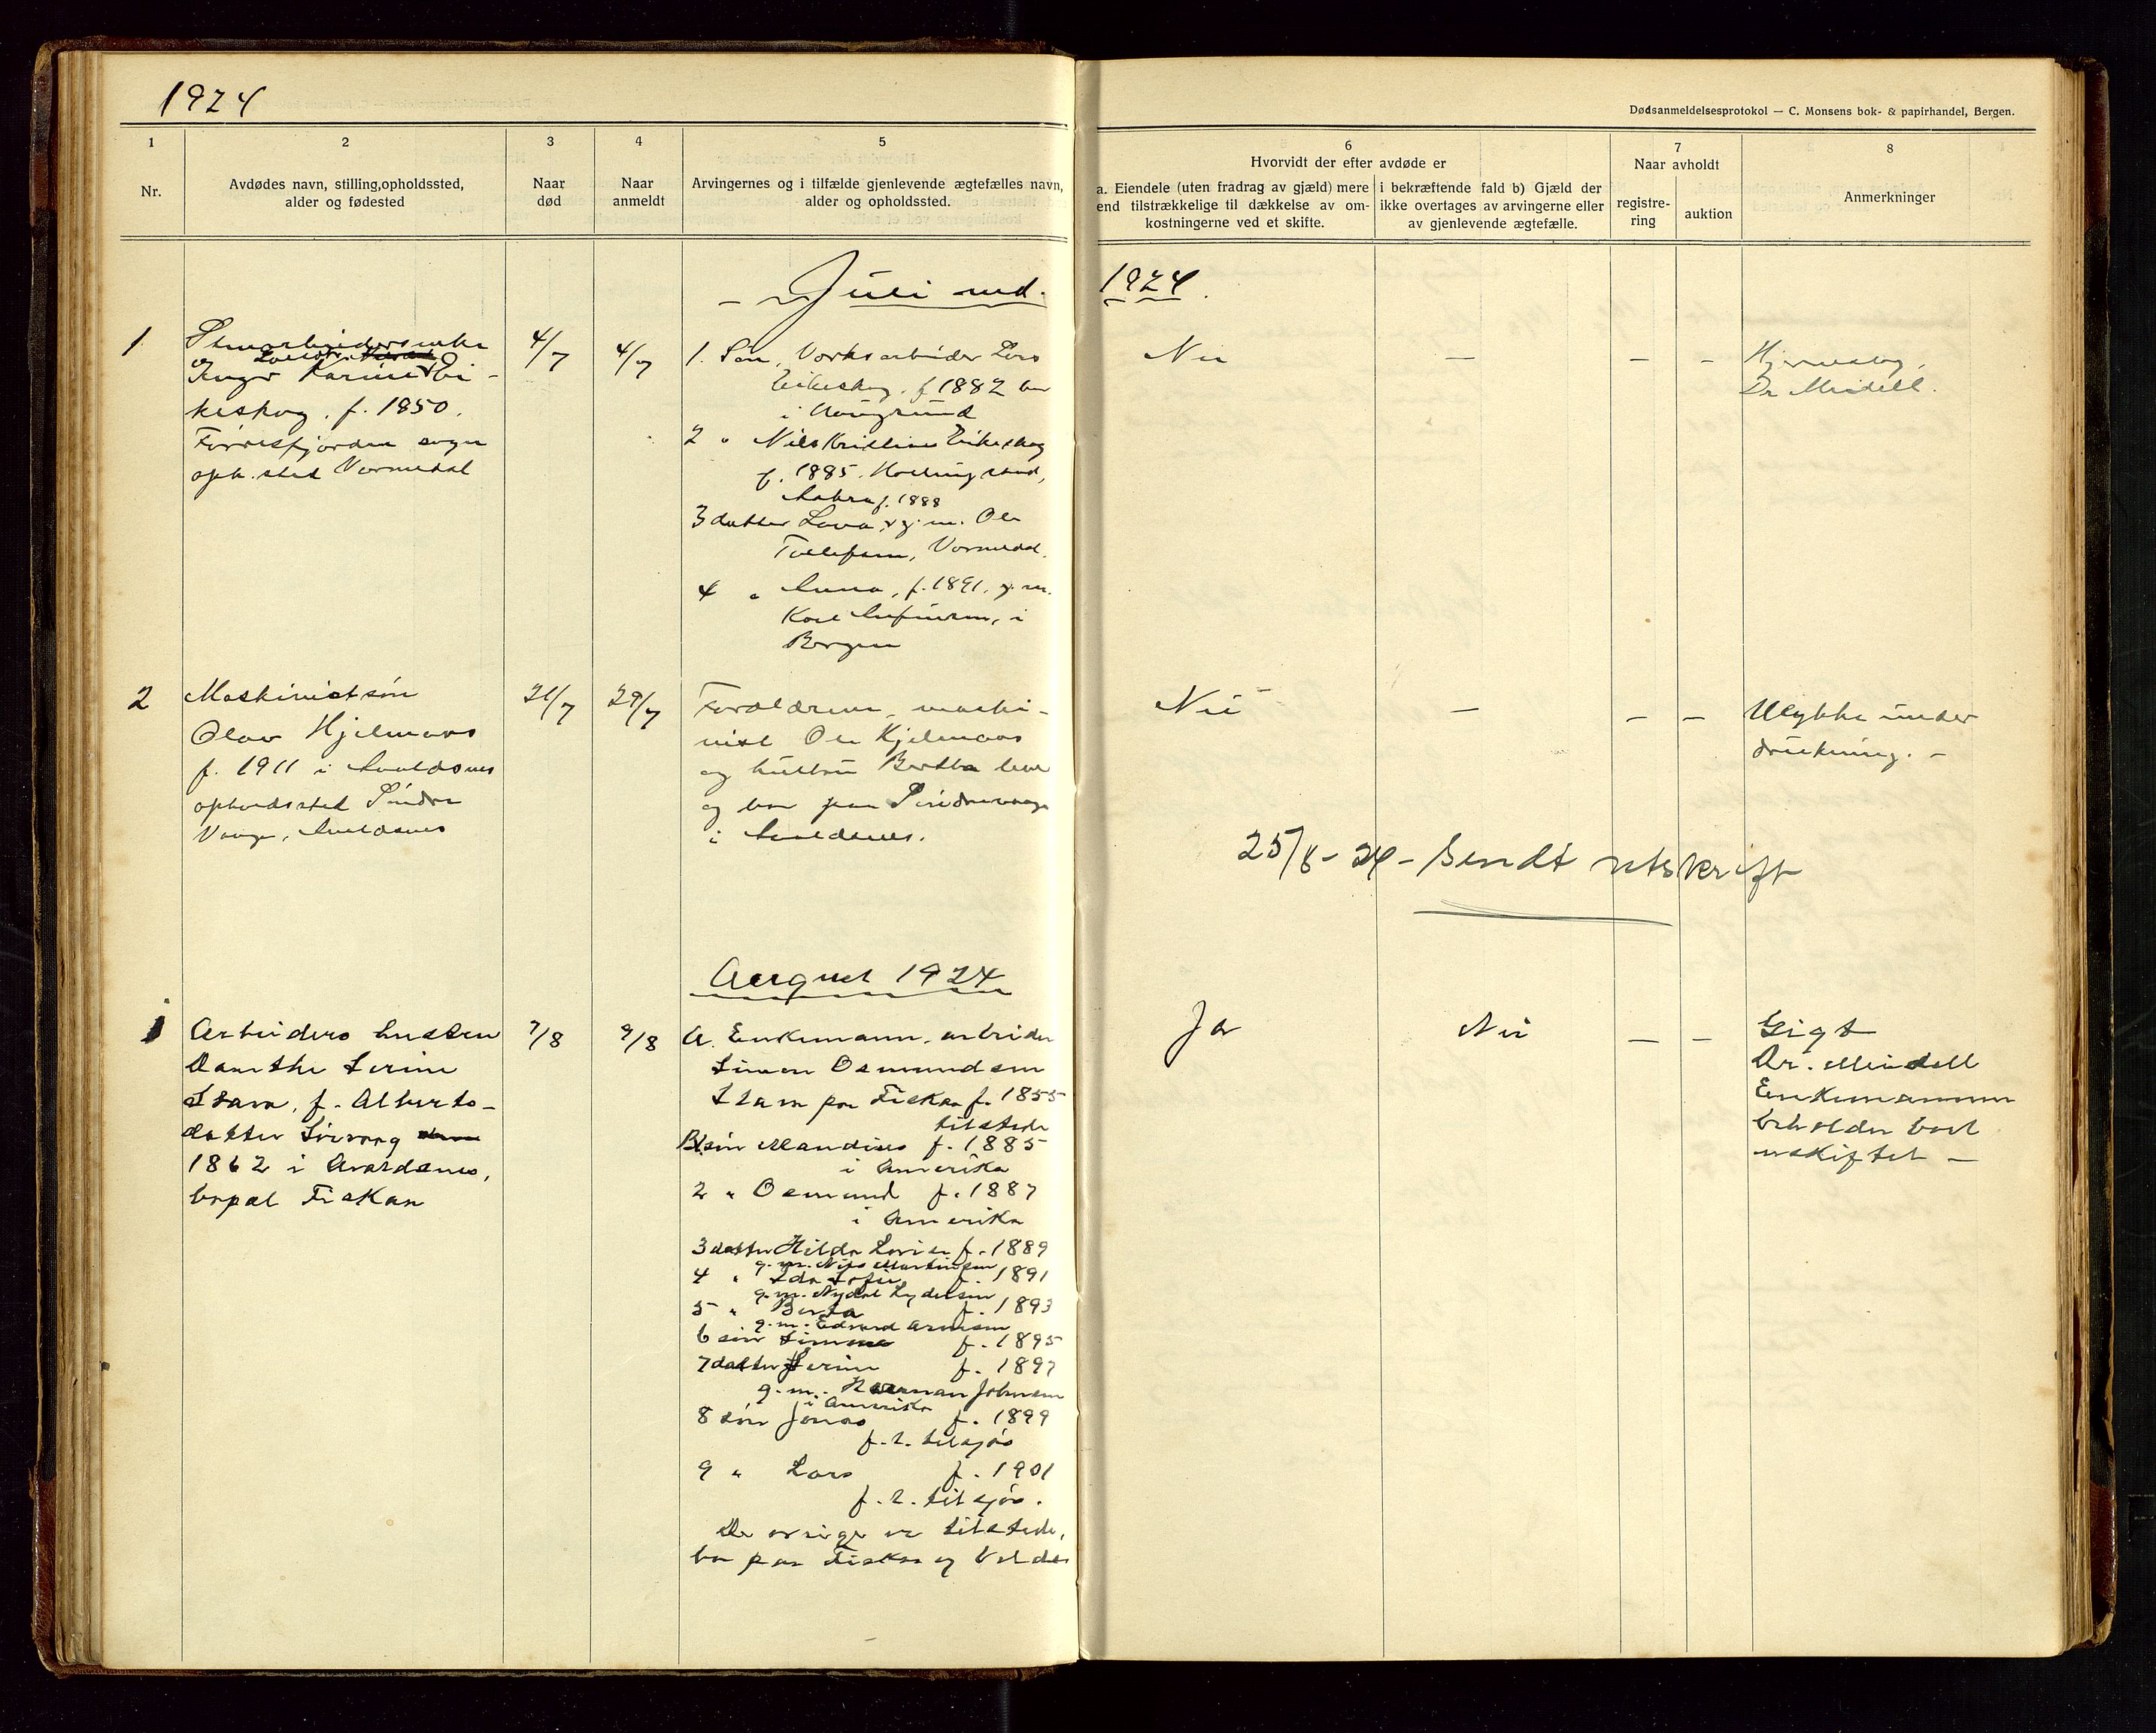 1924
Dødsanmeldelsesprotokol — C. Monsens bok- & papirhandel, Bergen.
1
2
3
4
5
6
7
8
Nr.
Avdødes navn, stilling, opholdssted,
alder og fødested
Naar
død
Naar
anmeldt
Arvingernes og i tilfælde gjenlevende ægtefælles navn,
alder og opholdssted.
Hvorvidt der efter avdøde er
a. Eiendele (uten fradrag av gjæld) mere
end tilstrækkelige til dækkelse av om-
kostningerne ved et skifte.
i bekræftende fald b) Gjæld der
ikke overtages av arvingerne eller
av gjenlevende ægtefælle.
Naar avholdt
registre-
ring
auktion
Anmerkninger
Juli md.
1924.
1
Inger Karine Ei-
keskog. f. 1850.
Førresfjorden sogn
oph.sted Vormedal
4/7
4/7
1. Søn, Lars
Eikeskog. f 1882 bor
i Haugesund
2 " Nils Kristian Eikeskog
f. 1885.
Aakra f. 1888
3 datter Lava, g.m. Ole
Tollefsen, Vormedal.
4 " Anna, f. 1891. g.m.
i
Bergen
Nei
—
—
—
Dr. Meidell.
2
Maskinist søn
Olav Hjelmaas
f. 1911 i Avaldsnes
opholdssted Søndre
Vaage, Avaldsnes
21/7
29/7
Forældrene, maski-
nist Ole Hjelmaas
og hustru Bertha lever
og bor paa Søndrevaage
i Avaldsnes.
Nei
—
—
—
Ulykke under
drukning. —
25/8 - 24 - Sendt utskrift
August 1924
1
Arbeiders hustru
Dorthe Serine
Stava, f. Alberts-
datter Sørvaag
1862 i Avaldsnes,
bopæl Fiskaa
7/8
9/8
A. Enkemann, arbeider
Simon Osmundsen
Stava paa Fiskaa f. 1855
tilstede
B1 søn Mandius f. 1885
i Amerika
2 " Osmund f. 1887
i Amerika
3 datter Hilda Lovise f. 1889
g.m. Nils Martinsen
4 " Ida Sofie f. 1891
g.m.
5 " Berta f. 1893
g.m. Edvard Arnesen
6 søn Simon f. 1895
7 datter Serine f. 1897
g.m. Herman Johnsen
i Amerika
8 søn Jonas f. 1899
f.t. tilsjøs
9 " Lars f. 1901
f.t. tilsjøs.
De øvrige er tilstede,
bor paa Fiskaa og
Ja
Nei
—
—
Gigt
Dr. Meidell
Enkemannen
beholder boet
uskiftet —